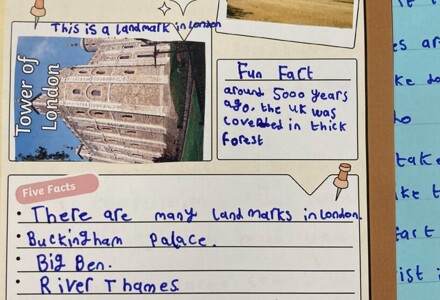 This is a landmark in London
Tower of
London
Fun Fact
around 5000 years
ago, the UK was
covered in thick
forest
Five Facts
• There are many landmarks in London.
• Buckingham Palace.
• Big Ben.
• River Thames